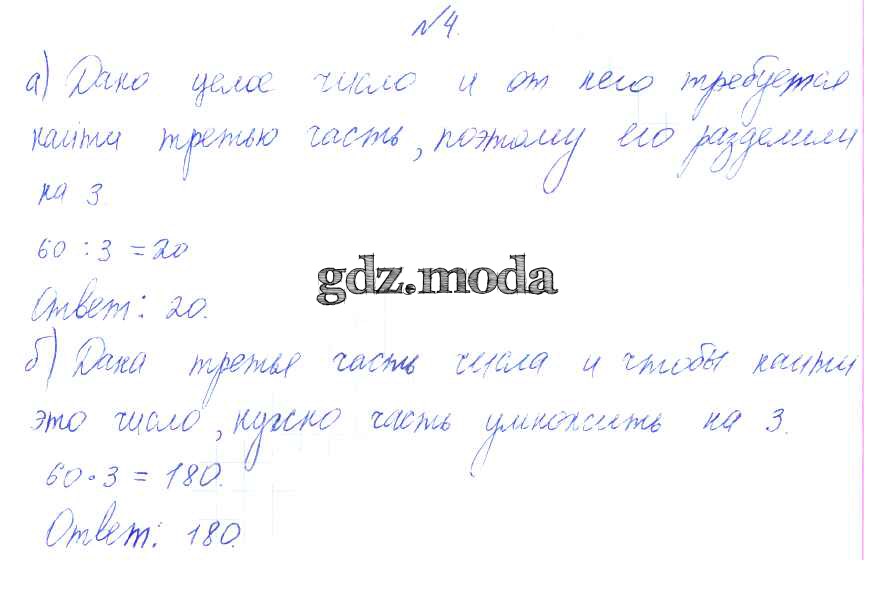 №4.
а) Дано целое число и от него требуется
найти третью часть, поэтому его разделили
на 3.
60 : 3 = 20
gdz.moda
Ответ: 20.
б) Дана третья часть числа и чтобы найти
это число, нужно часть умножить на 3.
60 · 3 = 180.
Ответ: 180.